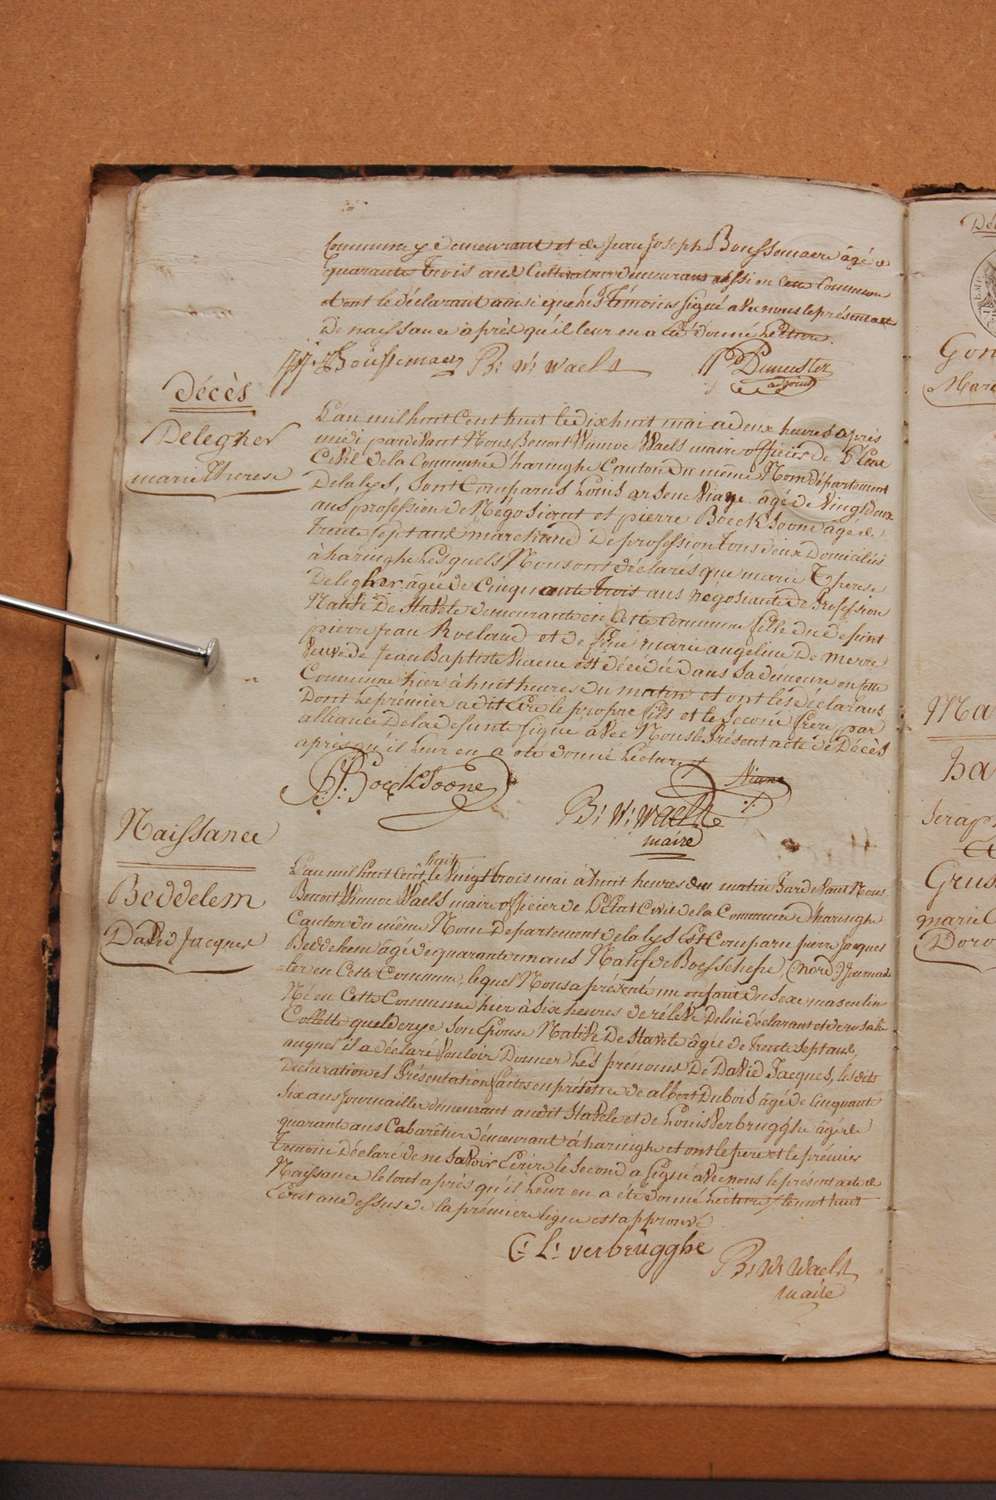 Commune y demeurant et de Jean Joseph Boussemaere âgé de
quarante trois ans Cultivateur demeurant aussi en cette Commune
et ont le déclarant ainsi que les témoins signé avec nous le présent acte
De naissance après qu'il leur en a été donné Lecture.
J: J: Boussemaere B: V: Waels P Demeester
adjoint
Décès
Delegher
marie Therese
L'an mil huit Cent huit le dix huit mai a deux heures après
midi pardevant Nous Benoit Winnoc Waels maire officier de l'Etat
Civil de la Commune d'haringhe Canton du même Nom département
De la lys, Sont Comparus Louis arsene Viane âgé de vingt deux
ans profession de Négosiant et pierre Boeck Soone âgé de
trente sept ans marchand De profession tous deux Domiciliés
à haringhe lesquels Nous ont déclarés que marie Therese
Delegher âgée de Cinquante trois ans négosiante de Profession
Native De Stavele demeurante en Cette Commune fille du defunt
pierre Jean Roeland et de marie angeline De merre
Veuve de Jean Baptiste Viaene est décedée dans sa demeure en cette
Commune hier à huit heures du matin et ont les déclarans
Dont le prémier a dit être le propre fils et le Second frère par
alliance De la defunte Signé avec Nous le Présent acte de Décès
après qu'il leur en a été donné Lecture
P: Boeck Soone Viane
B: V: Waels
maire
Naissance
Beddelem
David Jacques
huit
L'an mil huit Cent le Vingt trois mai à huit heures du matin Pardevant Nous
Benoit Winnoc Waels maire officier de l'Etat Civil de la Commune d'haringhe
Canton du même Nom Departement de la lys Est Comparu pierre Jacques
Beddelem âgé de quarante un ans Natif de Boesschepe (Nord) Journal
-ier en Cette Commune, lequel Nous a présenté un enfant du Sexe masculin
Né en Cette Commune hier à Six heures de rélevé De lui déclarant et de rosalie
Collette quelderye Son Epouse Native De Stavele âgée de trente Sept ans,
auquel il a déclaré Vouloir Donner les prénoms De David Jacques, les dits
Déclaration et Présentation faites en présence de albert Dubois âgé de Cinquante
Six ans journailler demeurant audit Stavele et de Louis Verbrugghe âgé de
quarante ans Cabarétier démeurant à haringhe et ont le pere et le prémier
Témoin Déclaré de ne Savoir Ecrire le Second a Signé avec nous le présent acte de
Naissance le tout après qu'il leur en a été donné Lecture / le mot huit
Ecrit au dessus de la prémiere ligne est approuvé
C: L: verbrugghe B: V: Waels
maire
Gon
Marc
Ma
Ba
Serap
Grus
marie C
Doro